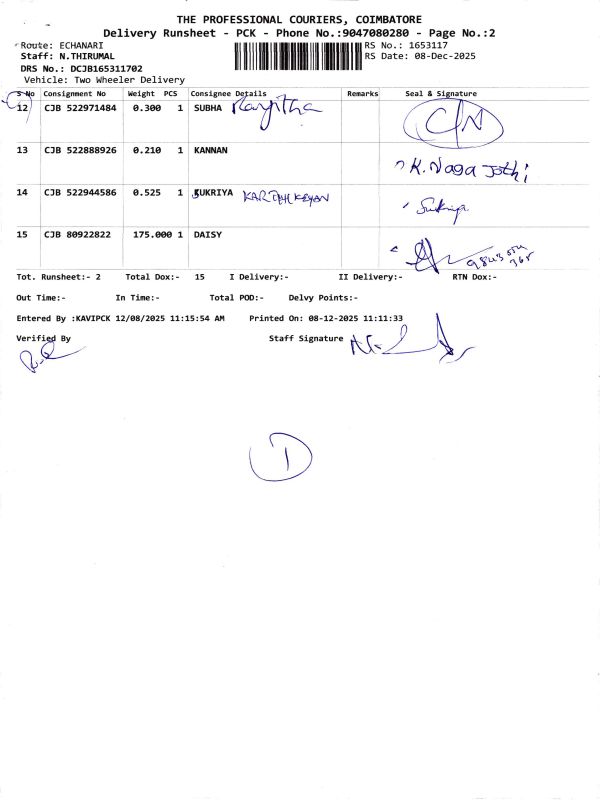 THE PROFESSIONAL COURIERS, COIMBATORE
Delivery Runsheet - PCK - Phone No.:9047080280 - Page No.:2
Route: ECHANARI RS No.: 1653117
Staff: N.THIRUMAL RS Date: 08-Dec-2025
DRS No.: DCJB165311702
Vehicle: Two Wheeler Delivery
S No Consignment No Weight PCS Consignee Details Remarks Seal & Signature
12 CJB 522971484 0.300 1 SUBHA
13 CJB 522888926 0.210 1 KANNAN K. Naga Jothi
14 CJB 522944586 0.525 1 SUKRIYA Sukriya
15 CJB 80922822 175.000 1 DAISY
Tot. Runsheet:- 2 Total Dox:- 15 I Delivery:- II Delivery:- RTN Dox:-
Out Time:- In Time:- Total POD:- Delvy Points:-
Entered By :KAVIPCK 12/08/2025 11:15:54 AM Printed On: 08-12-2025 11:11:33
Verified By Staff Signature
1